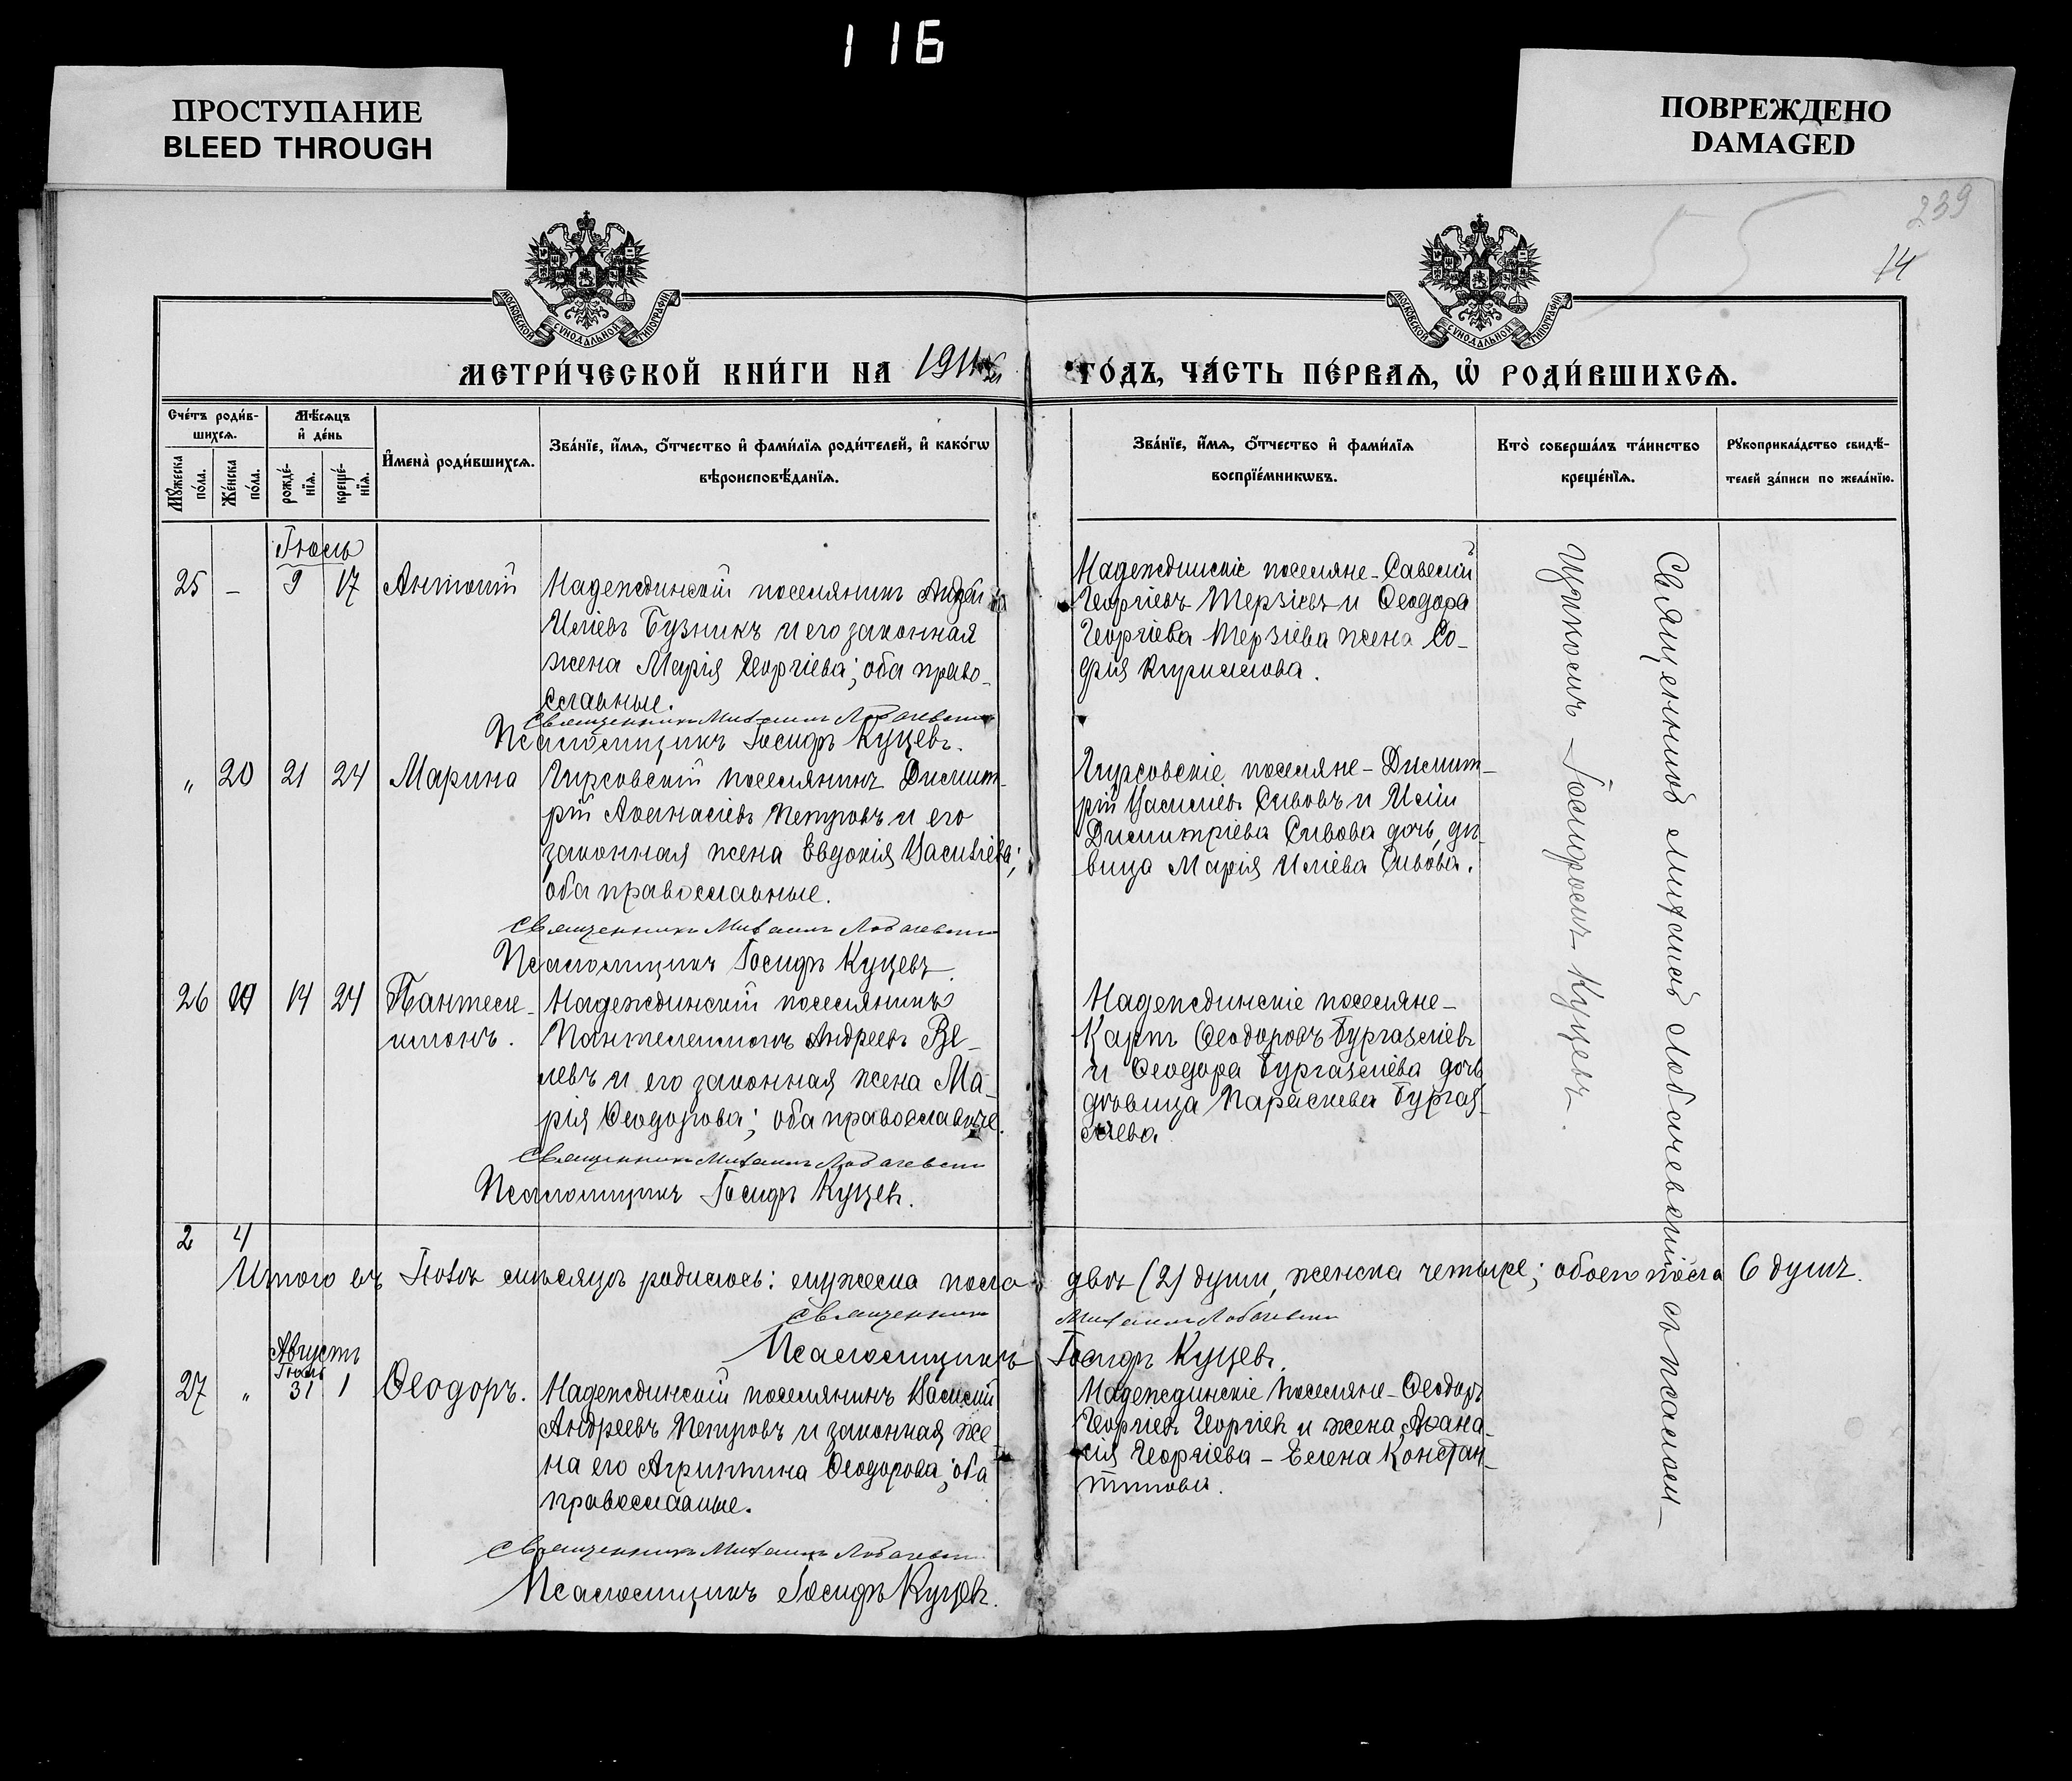 116
ПРОСТУПАНИЕ
BLEED THROUGH
ПОВРЕЖДЕНО
DAMAGED
239
55
14
МОСКОВСКОЙ СѴНОДАЛЬНОЙ ТИПОГРАФІИ
МОСКОВСКОЙ СѴНОДАЛЬНОЙ ТИПОГРАФІИ
МЕТРИ́ЧЕСКОЙ КНИ́ГИ НА 1911
ГО́ДЪ, ЧА́СТЬ ПЕ́РВАѦ, Ѡ҆ РОДИ́ВШИХСѦ.
Сче́тъ роди́в-
шихсѧ.
Мѣ́сѧцъ
и҆ де́нь
Мꙋ́жеска
по́ла.
Же́нска
по́ла.
рожде́-
нїѧ.
креще́-
нїѧ.
И҆мена̀ роди́вшихсѧ.
Зва́нїе, и҆́мѧ, ѻ҆́тчество и҆ фами́лїѧ роди́телей, и҆ како́гѡ
вѣроисповѣ́данїѧ.
Зва́нїе, и҆́мѧ, ѻ҆́тчество и҆ фами́лїѧ
воспрїе́мникѡвъ.
Кто̀ соверша́лъ та́инство
креще́нїѧ.
Рꙋкоприкла́дство свидѣ́-
телей за́писи по жела́нїю.
Іюль
25 – 9 17 Антоній
Надеждинскій поселянинъ Андрей
Иліевъ Бузникъ и его законная
жена Марія Георгіева; оба право-
славные.
Священникъ Михаилъ Лобачевскій
Псаломщикъ Іосифъ Куцевъ.
Надеждинскіе поселяне - Савелій
Георгіевъ Терзіевъ и Ѳеодора
Георгіева Терзіева жена Со-
фія Кириллова.
" 20 21 24 Марина
Гирсовскій поселянинъ Димит-
рій Аѳанасіевъ Петровъ и его
законная жена Евдокія Василіева;
оба православные.
Священникъ Михаилъ Лобачевскій
Псаломщикъ Іосифъ Куцевъ.
Гирсовскіе поселяне - Димит-
рій Василіевъ Сивовъ и Иліи
Димитріева Сивова дочь, дѣ-
вица Марія Иліева Сивова.
26 14 24 Пантеле-
имонъ.
Надеждинскій поселянинъ
Пантелеимонъ Андреевъ Ве-
левъ и его законная жена Ма-
рія Ѳеодорова; оба православные.
Священникъ Михаилъ Лобачевскій
Псаломщикъ Іосифъ Куцевъ.
Надеждинскіе поселяне -
Карпъ Ѳеодоровъ Бургазліевъ
и Ѳеодора Бургазліева дочь
дѣвица Параскева Бургаз-
ліева
Священникъ Михаилъ Лобачевскій съ псалом-
щикомъ Іосифомъ Куцевъ.
2 4
Итого въ Іюлѣ мѣсяцѣ родилось: мужеска пола двѣ (2) души, женска четыре; обоего пола 6 душъ.
Священникъ Михаилъ Лобачевскій
Псаломщикъ Іосифъ Куцевъ.
Августъ
Іюль
27 " 31 1 Ѳеодоръ.
Надеждинскій поселянинъ Василій
Андреевъ Петровъ и законная же
на его Агриппина Ѳеодорова; оба
православные.
Священникъ Михаилъ Лобачевскій
Псаломщикъ Іосифъ Куцевъ.
Надеждинскіе поселяне - Ѳеодоръ
Георгіевъ Георгіевъ и жена Аѳана-
сія Георгіева - Елена Констан-
тинова.